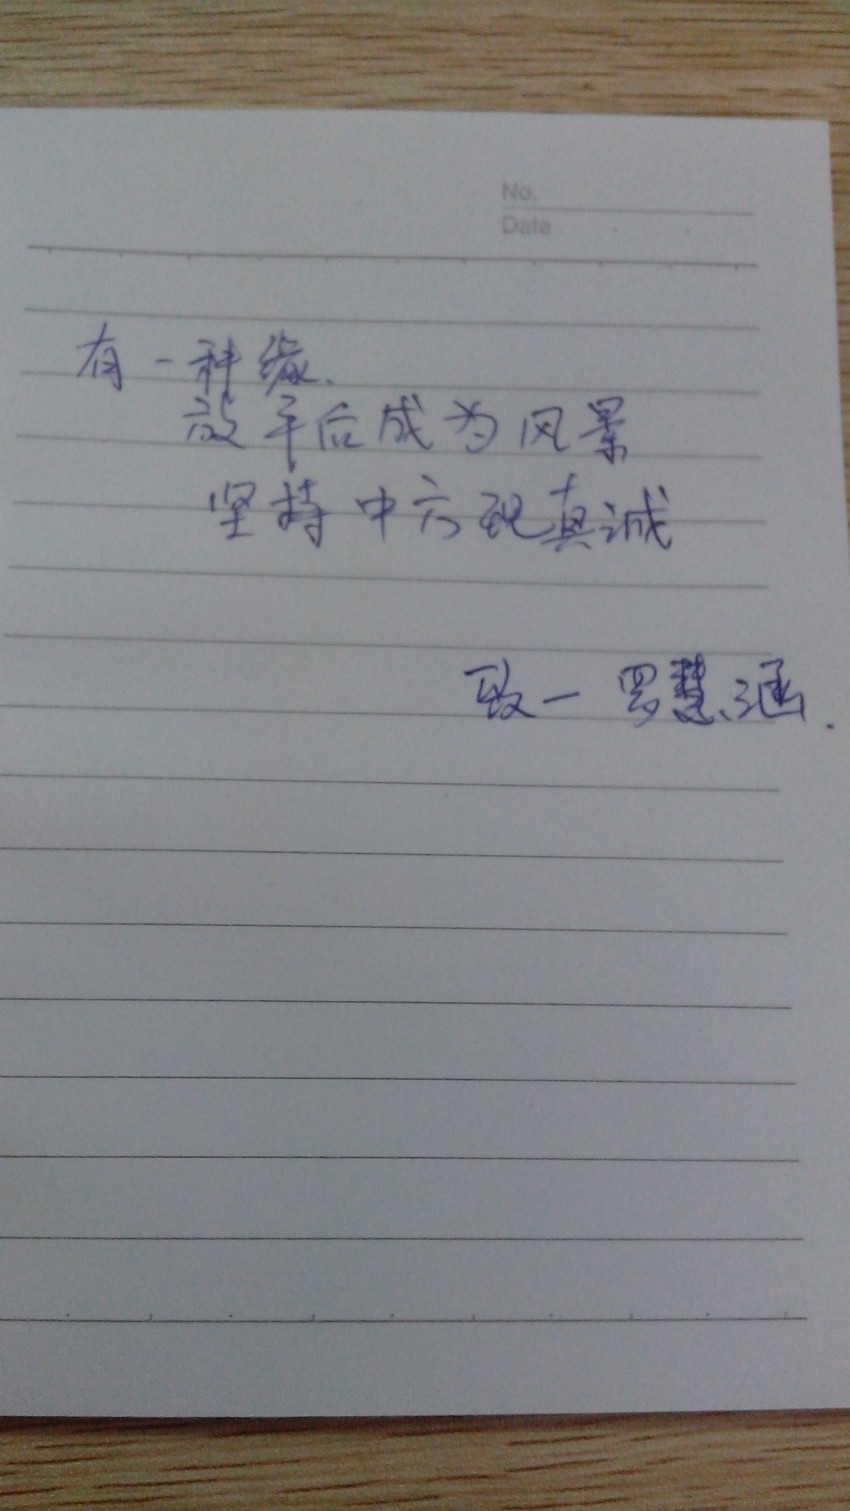 No.
Date
有一种缘、
放手后成为风景
坚持中方现真诚
致一罗慧涵.